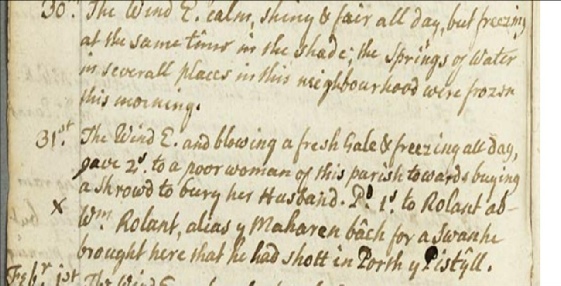 30. The Wind E. calm, shiny & fair all day, but freezing
at the same time in the shade; the springs of Water
in severall places in this neighbourhood were frozen
this morning.
31st. The Wind E. and blowing a fresh Gale & freezing all day,
gave 2s. to a poor woman of this parish towards buying
a Shrowd to bury her Husband. Pd 1s. to Rolant ab
x Wm. Rolant, alias y Maharen bâch for a Swan he
brought here that he had shott in Porth y Pistyll.
Febr. 1st The Wind E.